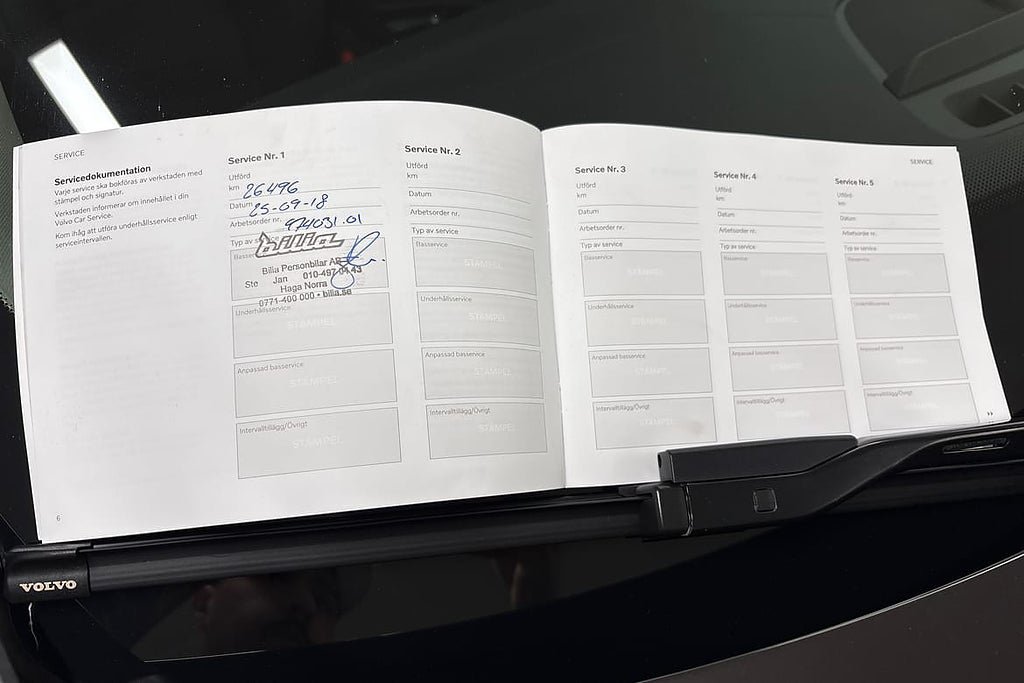 SERVICE
Servicedokumentation
Varje service ska bokföras av verkstaden med
stämpel och signatur.
Verkstaden informerar om innehållet i din
Volvo Car Service.
Kom ihåg att utföra underhållsservice enligt
serviceintervallen.
6
Service Nr. 1
Utförd
km 26496
Datum 25-09-18
Arbetsorder nr. 974031.01
Typ av
bilia
Bilia Personbilar AB
Ste Jan 010-497 04 43
Haga Norra
0771-400 000 • bilia.se
Underhållsservice
STÄMPEL
Anpassad basservice
STÄMPEL
Intervalltillägg/Övrigt
STÄMPEL
Service Nr. 2
Utförd
km
Datum
Arbetsorder nr.
Typ av service
Basservice
STÄMPEL
Underhållsservice
STÄMPEL
Anpassad basservice
STÄMPEL
Intervalltillägg/Övrigt
STÄMPEL
Service Nr. 3
Utförd
km
Datum
Arbetsorder nr.
Typ av service
Basservice
STÄMPEL
Underhållsservice
STÄMPEL
Anpassad basservice
STÄMPEL
Intervalltillägg/Övrigt
STÄMPEL
SERVICE
Service Nr. 4
Utförd
km
Datum
Arbetsorder nr.
Typ av service
Basservice
STÄMPEL
Underhållsservice
STÄMPEL
Anpassad basservice
STÄMPEL
Intervalltillägg/Övrigt
STÄMPEL
Service Nr. 5
Utförd
km
Datum
Arbetsorder nr.
Typ av service
Basservice
STÄMPEL
Underhållsservice
STÄMPEL
Anpassad basservice
STÄMPEL
Intervalltillägg/Övrigt
STÄMPEL
››
VOLVO